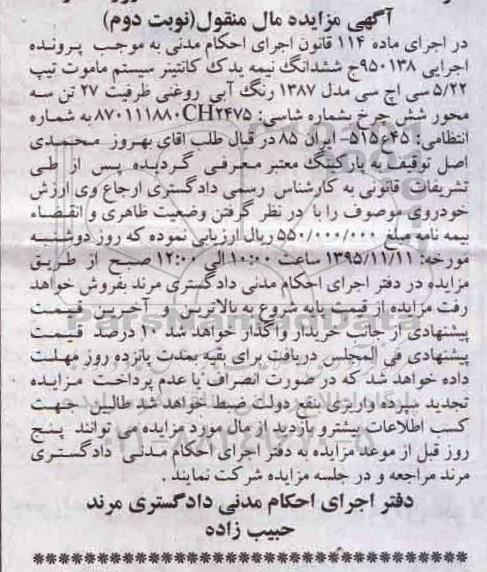 آگهی مزایده مال منقول(نوبت دوم)
در اجرای ماده ۱۱۴ قانون اجرای احکام مدنی به موجب پرونده
اجرایی ۹۵۰۱۳۸ج ششدانگ نیمه یدک کانتینر سیستم ماموت تیپ
۵/۲۲ سی اچ سی مدل ۱۳۸۷ رنگ آبی روغنی ظرفیت ۲۷ تن سه
محور شش چرخ بشماره شاسی: ۸۷۰۱۱۱۸۸۰CH۲۴۷۵ به شماره
انتظامی: ۴۵ع۵۱۵- ایران ۸۵ در قبال طلب اقای بهروز محمدی
اصل توقیف و پارکینگ معتبر معرفی گردیده پس از طی
تشریفات قانونی به کارشناس رسمی دادگستری ارجاع وی ارزش
خودروی موصوف را با در نظر گرفتن وضعیت ظاهری و انقضاء
بیمه نامه مبلغ ۵۵۰/۰۰۰/۰۰۰ ریال ارزیابی نموده که روز دوشنبه
مورخه: ۱۳۹۵/۱۱/۱۱ ساعت ۱۰:۰۰ الی ۱۲:۰۰ صبح از طریق
مزایده در دفتر اجرای احکام مدنی دادگستری مرند بفروش خواهد
رفت مزایده از قیمت پایه شروع به بالاترین و آخرین قیمت
پیشنهادی از جانب خریدار واگذار خواهد شد ۱۰ درصد قیمت
پیشنهادی فی المجلس دریافت برای بقیه بمدت پانزده روز مهلت
داده خواهد شد که در صورت انصراف یا عدم پرداخت مزایده
تجدید سپرده واریزی بنفع دولت ضبط خواهد شد طالبین جهت
کسب اطلاعات بیشتر و بازدید از مال مورد مزایده می توانند پنج
روز قبل از موعد مزایده به دفتر اجرای احکام مدنی دادگستری
مرند مراجعه و در جلسه مزایده شرکت نمایند .
دفتر اجرای احکام مدنی دادگستری مرند
حبیب زاده
ParsNamadData
۰۲۱-۸۸۳۴۹۶۷۰-۵